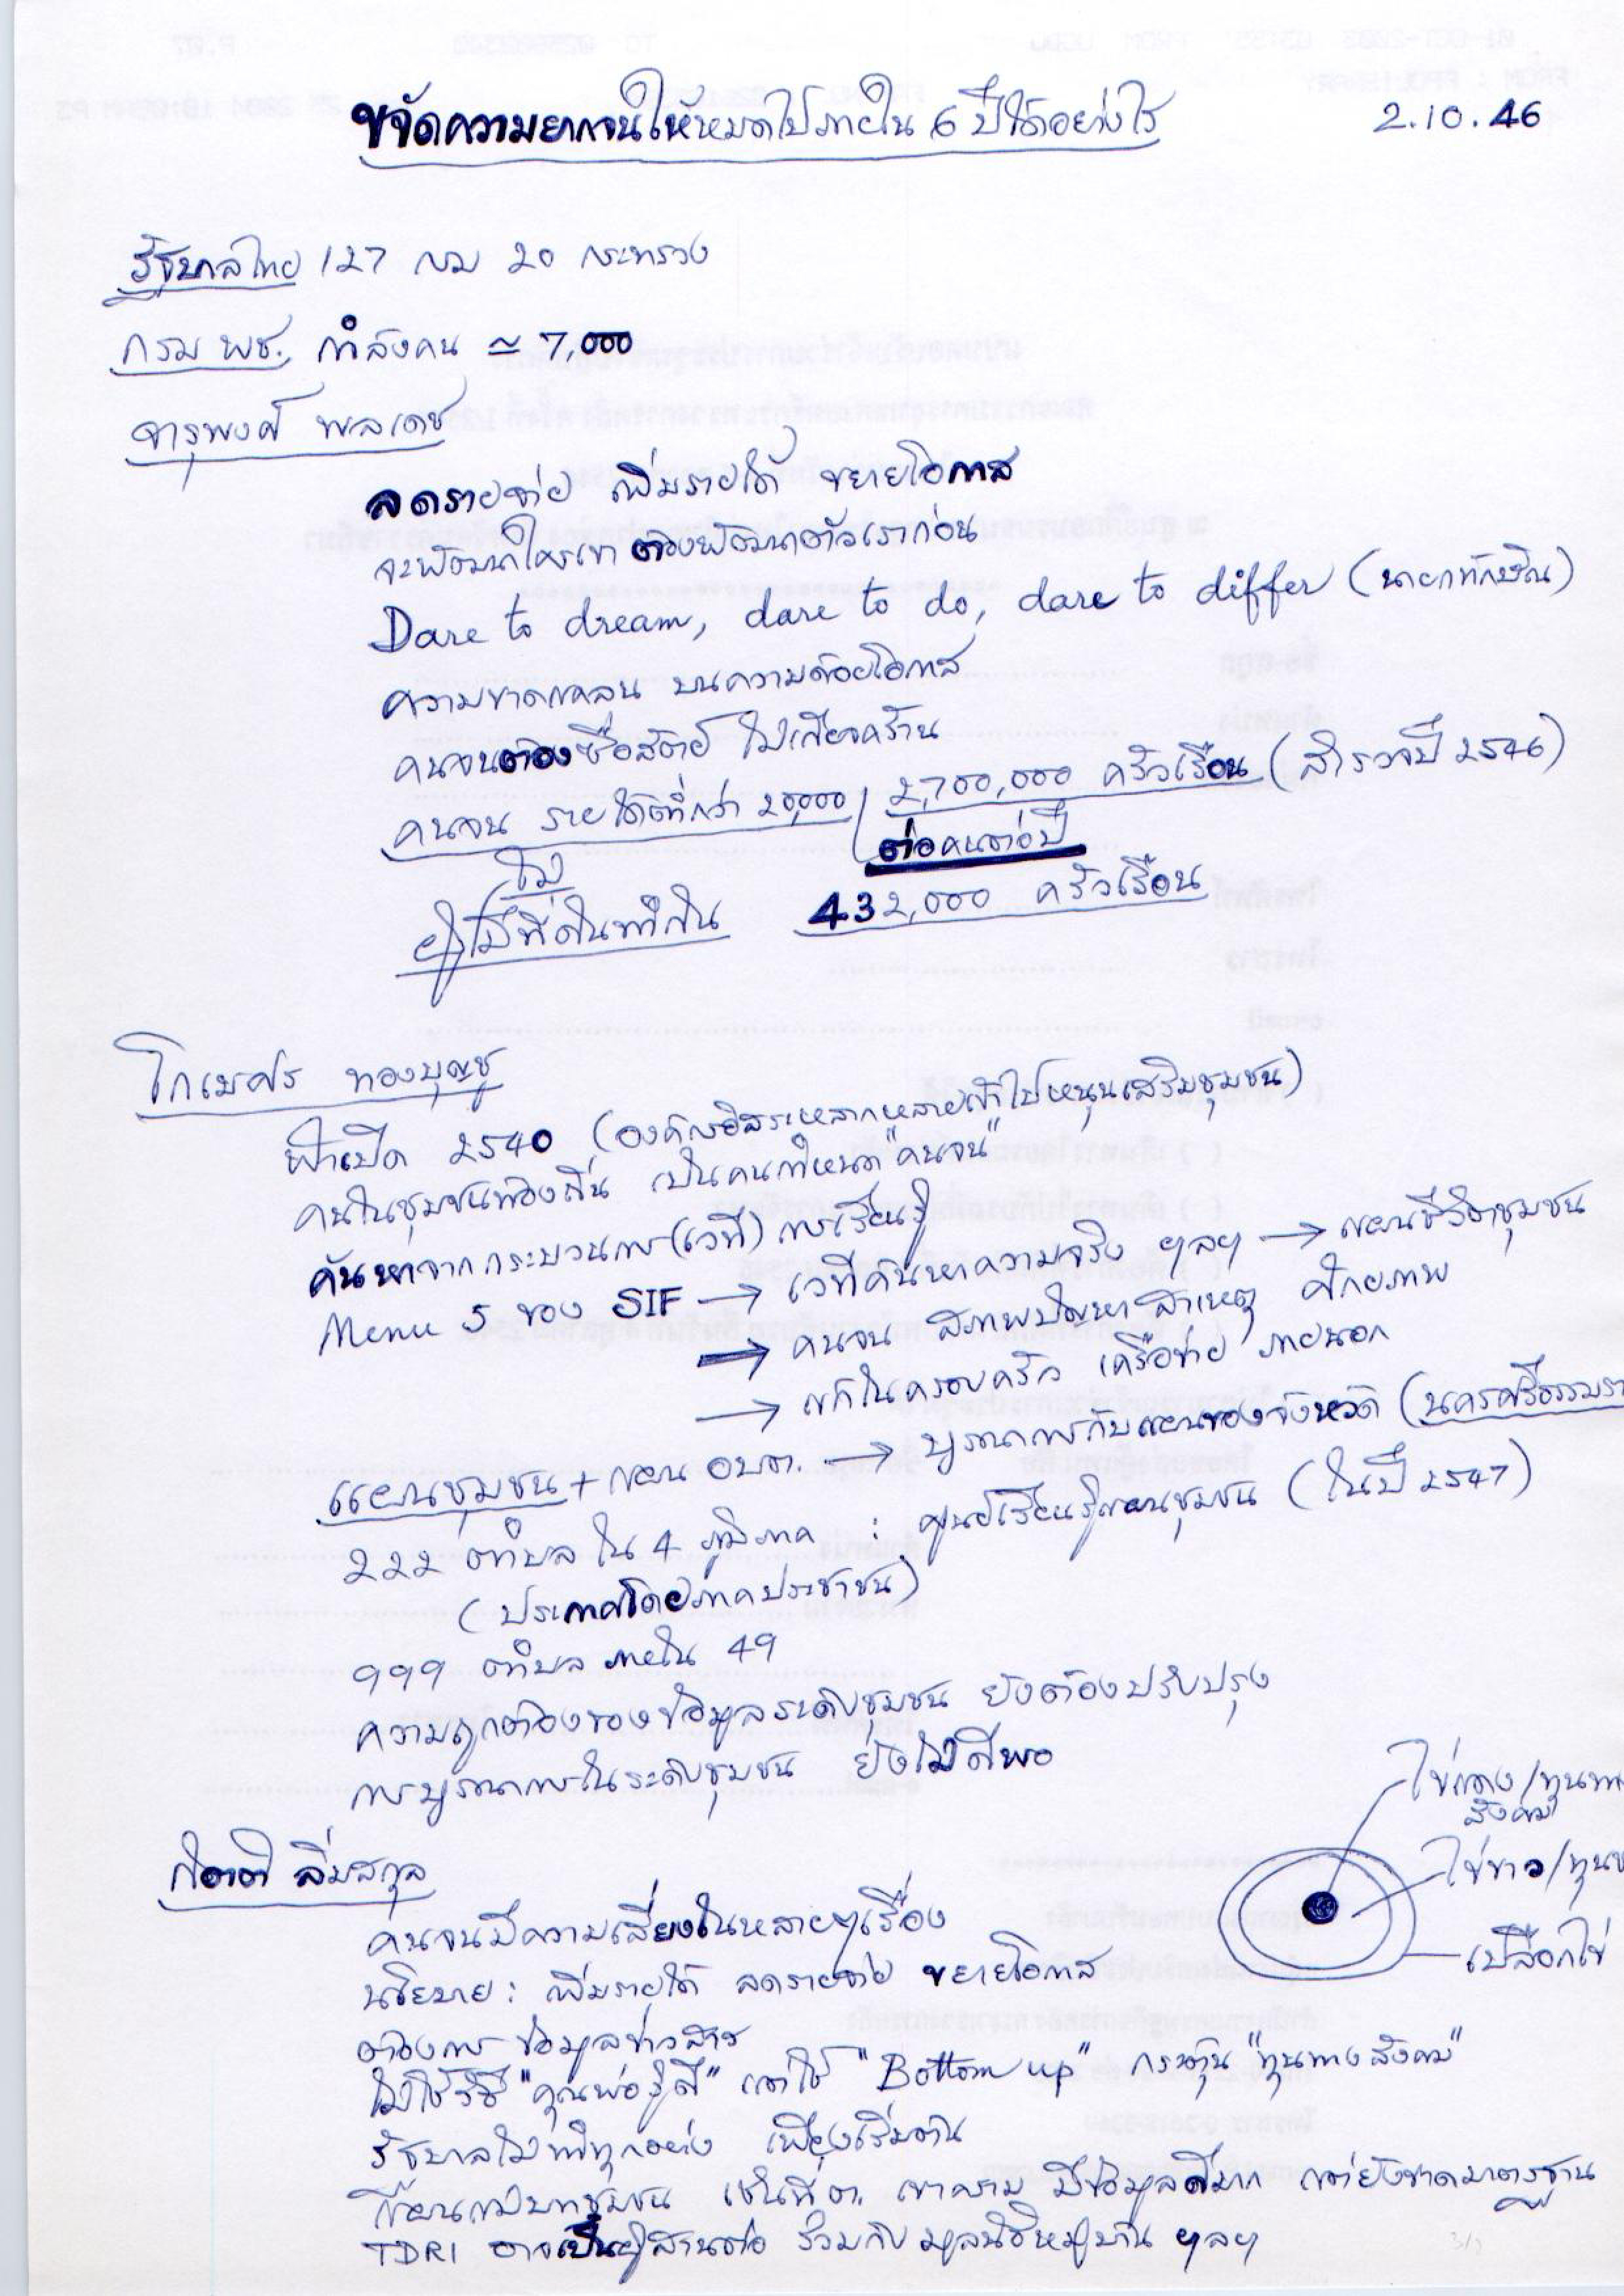 ขจัดความยากจนให้หมดไปภายใน 6 ปีได้อย่างไร
2.10.46
รัฐบาลไทย 127 กรม 20 กระทรวง
กรม พช. กำลังคน ≃ 7,000
จารุพงศ์ พลเดช
ลดรายจ่าย เพิ่มรายได้ ขยายโอกาส
จะพัฒนาใครเขา ต้องพัฒนาตัวเราก่อน
Dare to dream, dare to do, dare to differ (นายกทักษิณ)
ความขาดแคลน บนความด้อยโอกาส
คนจนต้องซื่อสัตย์ ไม่เกียจคร้าน
คนจน รายได้ต่ำกว่า 20,000 / 2,700,000 ครัวเรือน (สำรวจปี 2546)
ต่อคนต่อปี
ไม่
ผู้ไม่มีที่ดินทำกิน 432,000 ครัวเรือน
โกเมศร์ ทองบุญชู
ฟ้าเปิด 2540 (องค์กรอิสระหลากหลายเข้าไปหนุนเสริมชุมชน)
คนในชุมชนท้องถิ่น เป็นคนกำหนด "คนจน"
ค้นหาจากกระบวนการ (เวที) การเรียนรู้
Menu 5 ของ SIF → เวทีค้นหาความจริง ฯลฯ → แผนชีวิตชุมชน
→ คนจน สภาพปัญหา สาเหตุ ศักยภาพ
→ แก้ในครอบครัว เครือข่าย ภายนอก
แผนชุมชน + แผน อบต. → บูรณาการกับแผนของจังหวัด (นครศรีธรรมรา
222 ตำบล ใน 4 ภูมิภาค : ศูนย์เรียนรู้แผนชุมชน (ในปี 2547)
(ประกาศโดยภาคประชาชน)
999 ตำบล ภายใน 49
ความถูกต้องของข้อมูลระดับชุมชน ยังต้องปรับปรุง
การบูรณาการในระดับชุมชน ยังไม่ดีพอ
ไข่แดง/ทุนทา
สังคม
ไข่ขาว/ทุน
เปลือกไข่
กิตติ ลิ่มสกุล
คนจนมีความเสี่ยงในหลายๆเรื่อง
นโยบาย : เพิ่มรายได้ ลดรายจ่าย ขยายโอกาส
ต้องการ ข้อมูลข่าวสาร
ไม่ใช้วิธี "คุณพ่อรู้ดี" แต่ใช้ "Bottom up" กระตุ้น "ทุนทางสังคม"
รัฐบาลไม่ทำทุกอย่าง เพียงเริ่มต้น
แผนแม่บทชุมชน เช่นที่ ต. เขาคราม มีข้อมูลดีมาก แต่ยังขาดมาตรฐาน
TDRI อาจเป็นผู้สานต่อ ร่วมกับ มูลนิธิหมู่บ้าน ฯลฯ